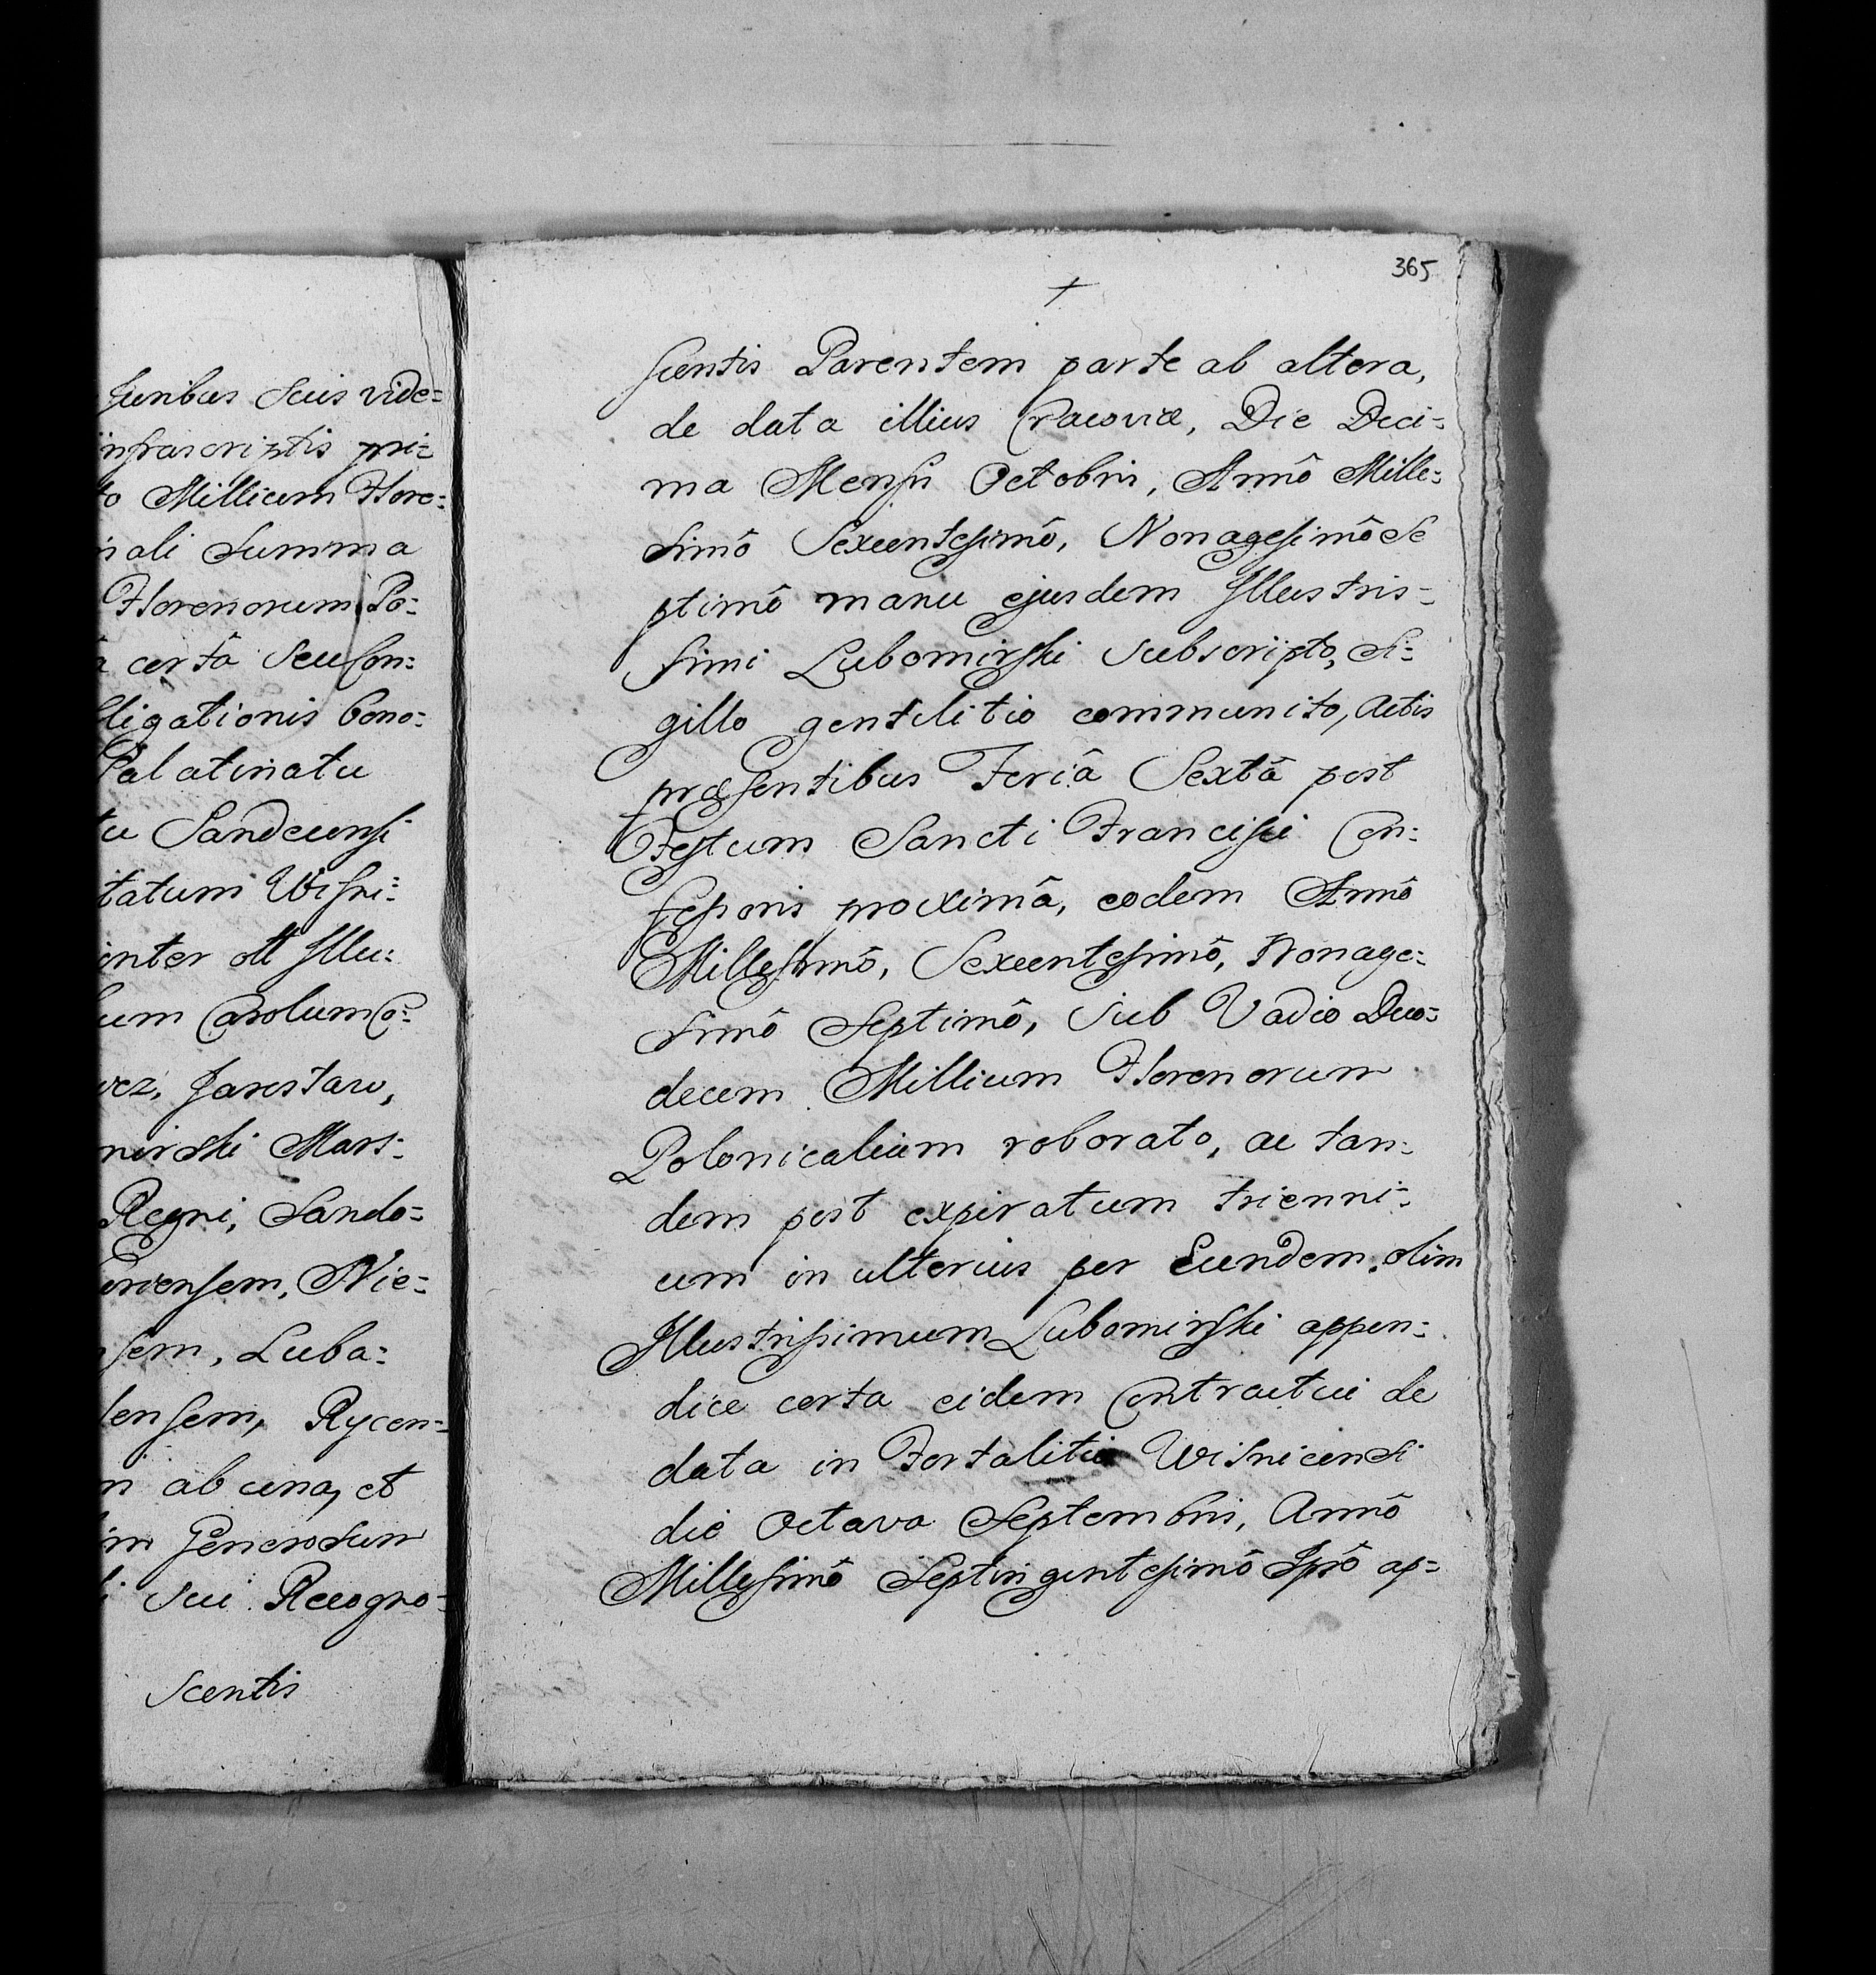 Juribus Suis vide=
infrascriptis pri=
Millium Flore=
nali Summa
Florenorum Po=
certâ seu Con=
lligationis bono=
Palatinatu
Sandecensi
itatum Wisni=
inter olī Illu=
um Carolum Co=
Jarostaw,
mirski Mars=
Regni, Sando=
oviensem, Nie=
sem, Luba=
lensem, Rycen=
ab una, et
Generosum
Sui Recogno=
Scentis
365
Scentis Parentem parte ab altera,
de data illius Cracoviæ, Die Deci=
ma Mensis Octobris, Annô Mille=
simô Sexcentesimô, Nonagesimô Se
ptimô manu ejusdem Illustris=
simi Lubomirski Subscripto, Si=
gillo gentilitio communito, Actis
præsentibus Feriâ Sextâ post
Festum Sancti Francisci Con=
fessoris proximâ, eodem Annô
Millesimô, Sexcentesimô, Nonage=
simô Septimô, Sub Vadio Duo=
decem Millium Florenorum
Polonicalium roborato, ac tan=
dem post expiratum trienni=
um in ulterius per Eundem olim
Illustrissimum Lubomirski appen=
dice certa eidem Contractui de
data in Fortalitio Wisnicensi
die Octava Septembris, Annô
Millesimô Septingentesimô Ipsô ap=